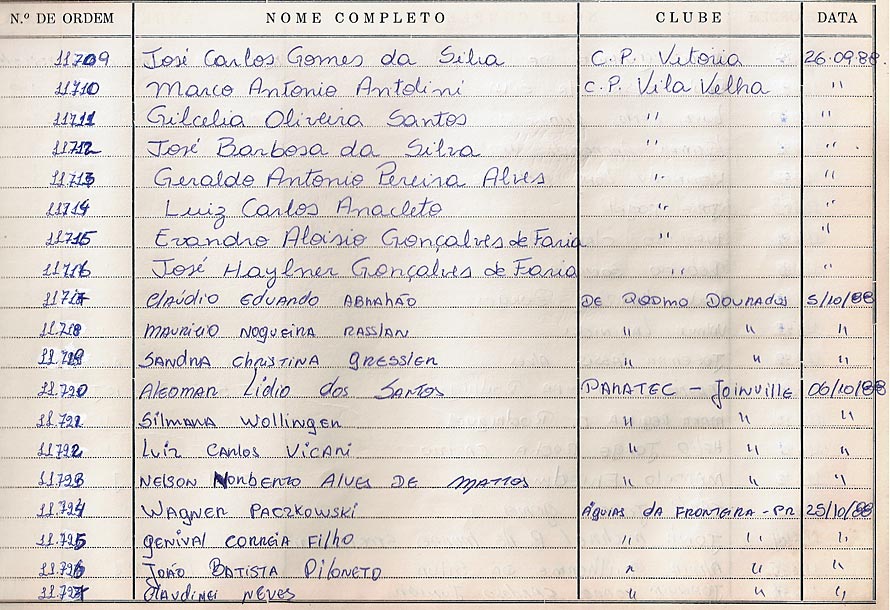 N.º DE ORDEM NOME COMPLETO CLUBE DATA
11709 José Carlos Gomes da Silva C.P. Vitória 26.09.88.
11710 Marco Antonio Antolini C.P. Vila Velha "
11711 Gilcelia Oliveira Santos " "
11712 José Barbosa da Silva " "
11713 Geraldo Antonio Pereira Alves " "
11714 Luiz Carlos Anacleto " "
11715 Evandro Aloisio Gonçalves de Faria " "
11716 José Haylner Gonçalves de Faria " "
11717 Claúdio Eduardo Abrahão DE Dourados 5/10/88
11.718 Mauricio Nogueira Rasslan " " "
11.719 SANDRA Christina Gressler " " "
11.720 Aleomar Lídio dos Santos PARATEC - Joinville 06/10/88
11.721 Silmara Wollinger " " "
11.722 Luiz Carlos Vicari " " "
11.723 NELSON Norberto Alves DE Mattos " " "
11.724 WAGNER PACZKOWSKI Águias da FRONTEIRA - PR 25/10/88
11.725 GENIVAL CORREIA Filho " " "
11.726 João BATISTA Piloneto " " "
11.727 Claudinei NEVES " " "